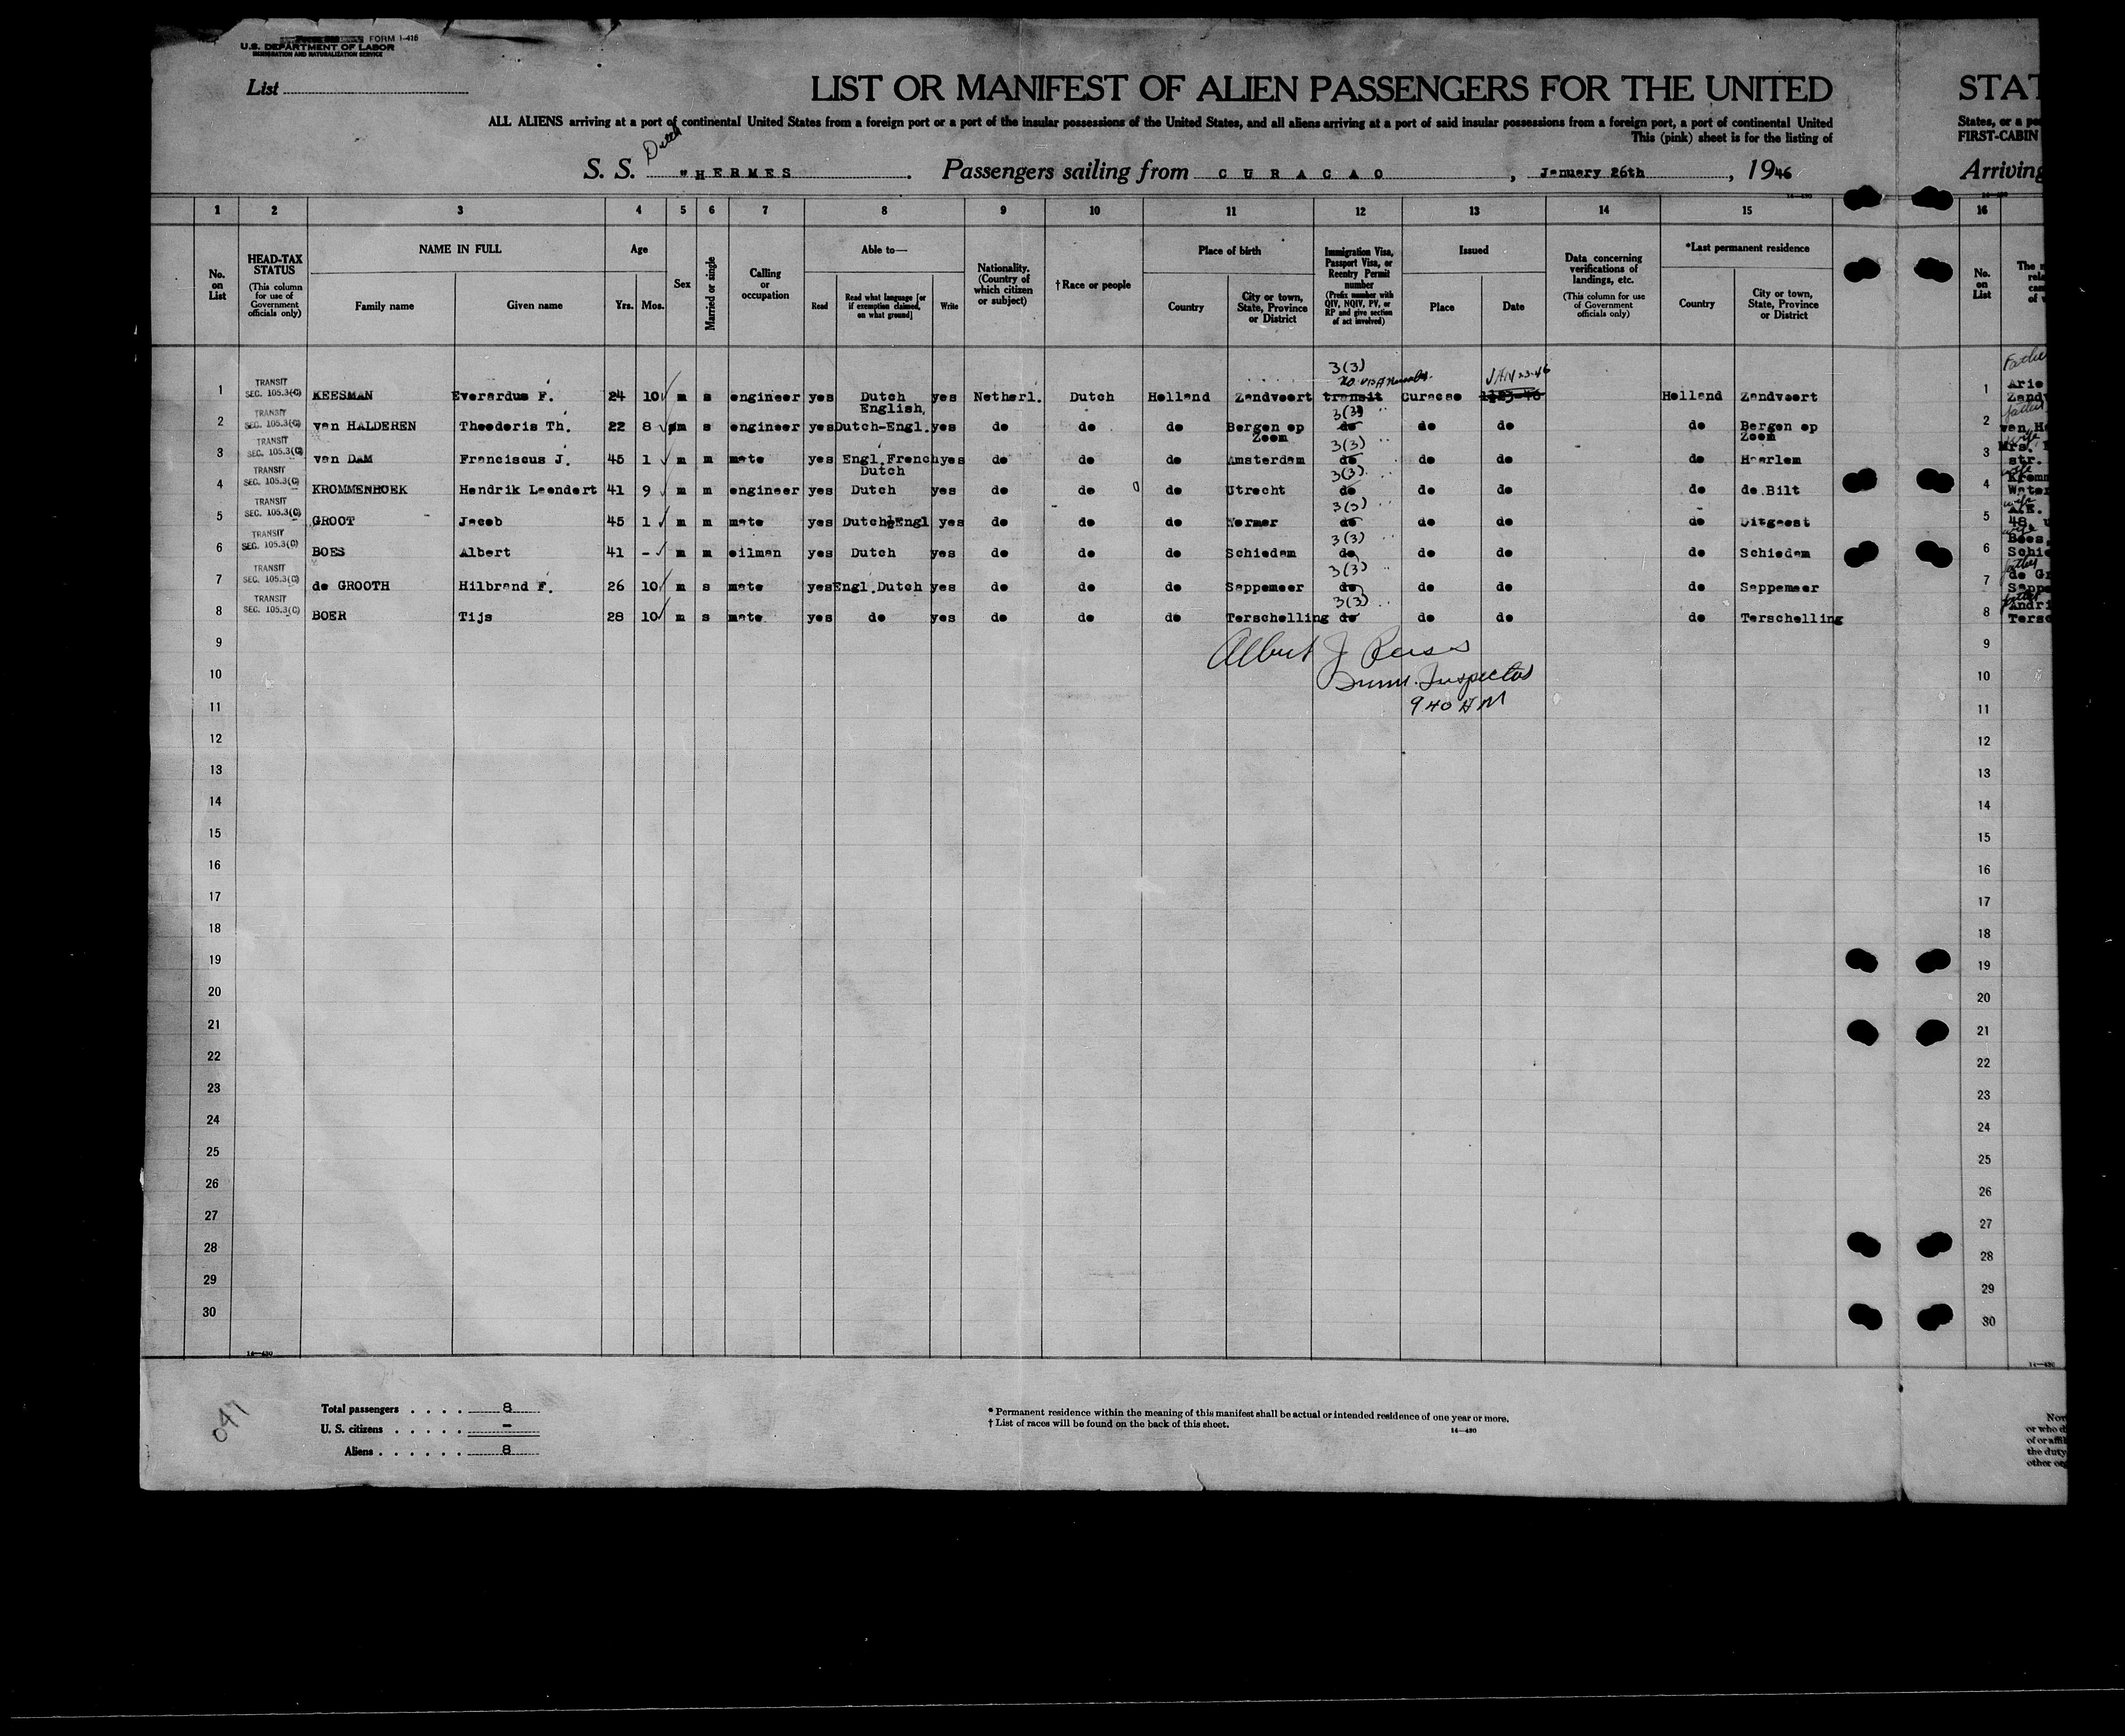 FORM I-415
U.S. DEPARTMENT OF LABOR
IMMIGRATION AND NATURALIZATION SERVICE
List
LIST OR MANIFEST OF ALIEN PASSENGERS FOR THE UNITED STAT
ALL ALIENS arriving at a port of continental United States from a foreign port or a port of the insular possessions of the United States, and all aliens arriving at a port of said insular possessions from a foreign port, a port of continental United States, or a
This (pink) sheet is for the listing of FIRST-CABIN
Dutch
S. S. "HERMES . Passengers sailing from CURACAO , January 26th , 1946 Arriving
1 2 3 4 5 6 7 8 9 10 11 12 13 14 15 16
No. on List
HEAD-TAX STATUS
(This column for use of Government officials only)
NAME IN FULL
Family name Given name
Age
Yrs. Mos.
Sex
Married or single
Calling or occupation
Able to—
Read Read what language [or if exemption claimed, on what ground] Write
Nationality. (Country of which citizen or subject)
†Race or people
Place of birth
Country City or town, State, Province or District
Immigration Visa, Passport Visa, or Reentry Permit number
(Prefix number with QIV, NQIV, PV, or RP and give section of act involved)
Issued
Place Date
Data concerning verifications of landings, etc.
(This column for use of Government officials only)
*Last permanent residence
Country City or town, State, Province or District
No. on List
3(3) Father
TRANSIT No visa Number JAN 23-46
1 SEC. 105.3(C) KEESMAN Everardus F. 24 10 m s engineer yes Dutch English, yes Netherl. Dutch Holland Zandvoort transit Curacao Holland Zandvoort 1 Arie
TRANSIT 3(3) father
2 SEC. 105.3(C) van HALDEREN Theodoris Th. 22 8 m s engineer yes Dutch-Engl. yes do do do Bergen op Zoom do do do do Bergen op Zoom 2
TRANSIT 3(3) wife
3 SEC. 105.3(C) van DAM Franciscus J. 45 1 m m mate yes Engl.French Dutch yes do do do Amsterdam do do do do Haarlem 3 Mrs.
str.
TRANSIT 3(3) wife
4 SEC. 105.3(C) KROMMENHOEK Hendrik Leendert 41 9 m m engineer yes Dutch yes do do do Utrecht do do do do de Bilt 4
TRANSIT 3(3) wife
5 SEC. 105.3(C) GROOT Jacob 45 1 m m mate yes Dutch Engl yes do do do Wormer do do do do Uitgeest 5
TRANSIT 3(3) wife
6 SEC. 105.3(C) BOES Albert 41 - m m oilman yes Dutch yes do do do Schiedam do do do do Schiedam 6 Boes,
TRANSIT 3(3) father
7 SEC. 105.3(C) de GROOTH Hilbrand F. 26 10 m s mate yes Engl.Dutch yes do do do Sappemeer do do do do Sappemeer 7
TRANSIT 3(3) father
8 SEC. 105.3(C) BOER Tijs 28 10 m s mate yes do yes do do do Terschelling do do do do Terschelling 8
9 9
Albert J
10 Immr. Inspector 10
11 9 40 AM 11
12 12
13 13
14 14
15 15
16 16
17 17
18 18
19 19
20 20
21 21
22 22
23 23
24 24
25 25
26 26
27 27
28 28
29 29
30 30
14—430
047
Total passengers . . . . 8
U. S. citizens . . . . . –
Aliens . . . . . . 8
* Permanent residence within the meaning of this manifest shall be actual or intended residence of one year or more.
† List of races will be found on the back of this sheet.
14—430
or who d
of or affil
the duty
other org